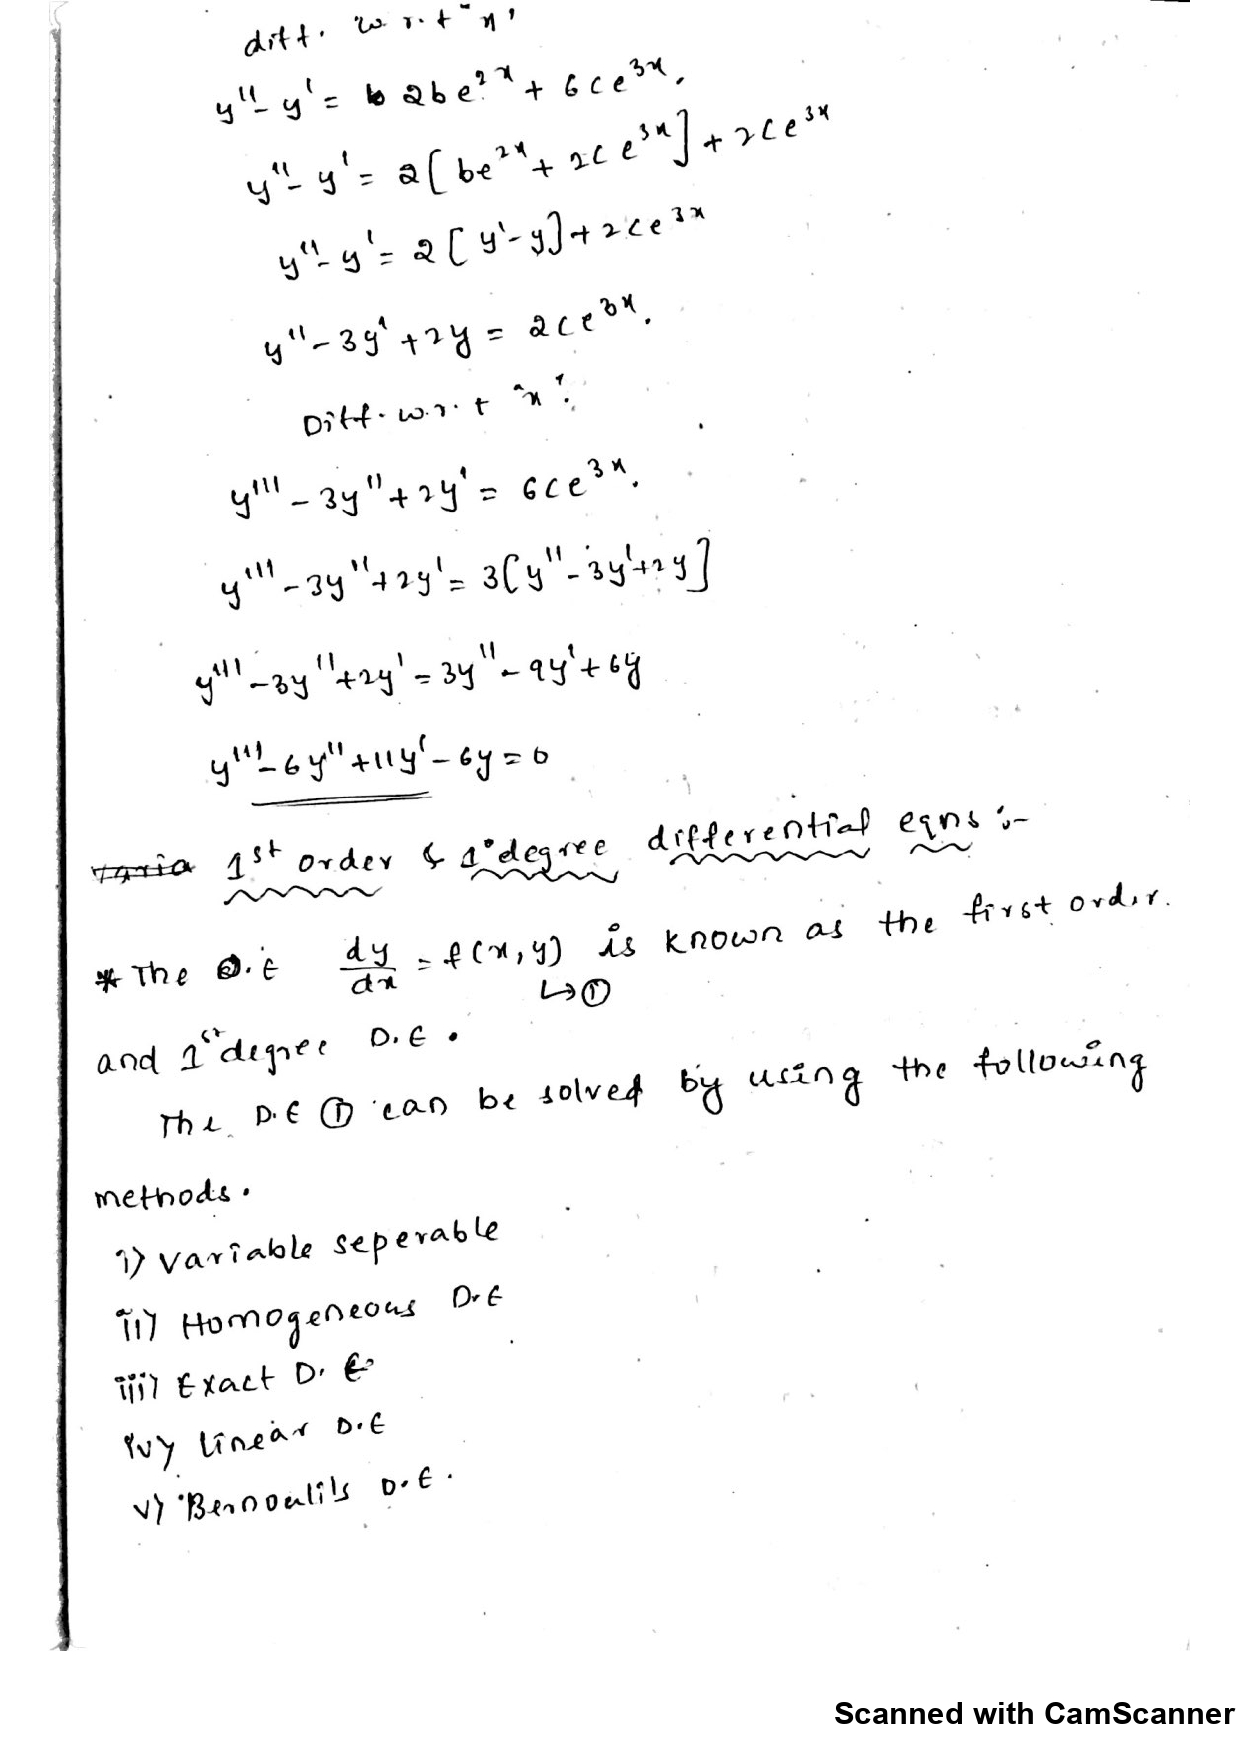 diff. w.r.t "x'
y'' - y' = 2be^{2x} + 6ce^{3x}.
y'' - y' = 2[be^{2x} + 2ce^{3x}] + 2ce^{3x}
y'' - y' = 2[y' - y] + 2ce^{3x}
y'' - 3y' + 2y = 2ce^{3x}.
Diff. w.r.t "x'.
y''' - 3y'' + 2y' = 6ce^{3x}.
y''' - 3y'' + 2y' = 3[y'' - 3y' + 2y]
y''' - 3y'' + 2y' = 3y'' - 9y' + 6y
y''' - 6y'' + 11y' - 6y = 0
varia 1st order & 1° degree differential eqns :-
* The D.E dy/dx = f(x,y) is known as the first order.
↳①
and 1st degree D.E.
The D.E ① can be solved by using the following
methods.
i) variable seperable
ii) Homogeneous D.E
iii) Exact D.E.
iv) linear D.E
v) Bernoulils D.E.
Scanned with CamScanner